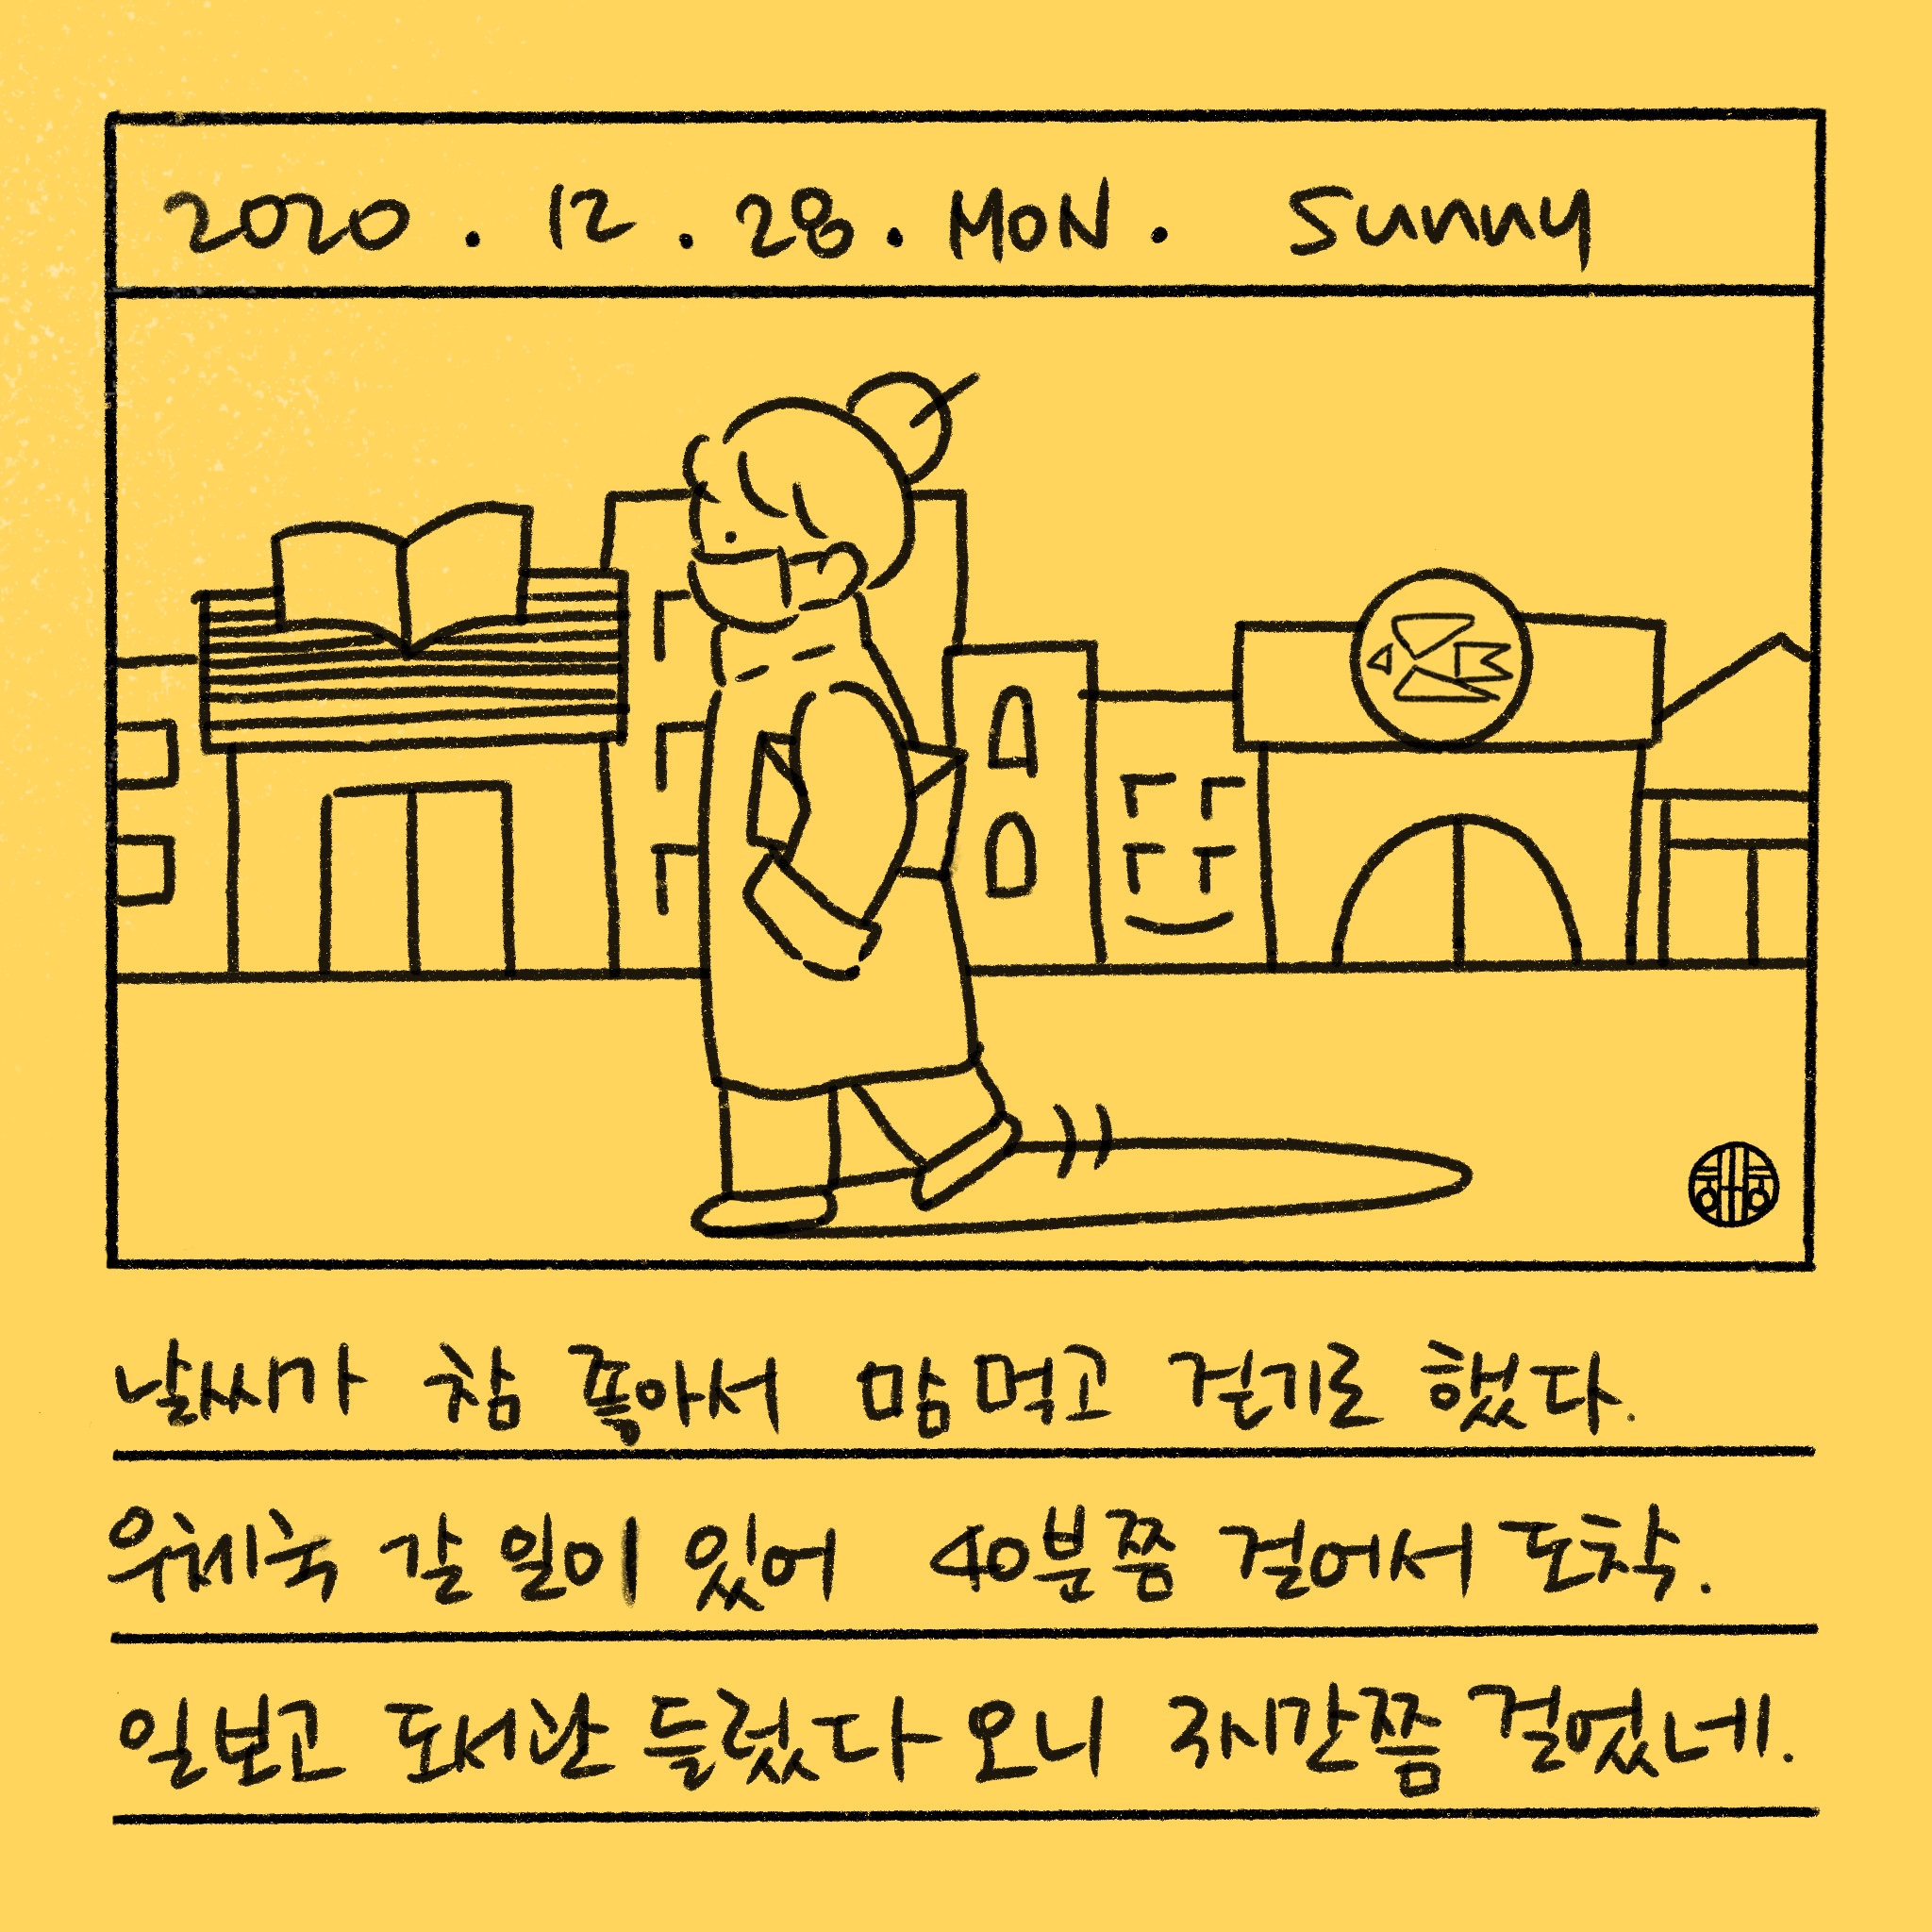 2020 . 12 . 28 . MON . Sunny
날씨가 참 좋아서 맘먹고 걷기로 했다.
우체국 갈 일이 있어 40분쯤 걸어서 도착.
일보고 도서관 들렀다 오니 3시간쯤 걸었네.